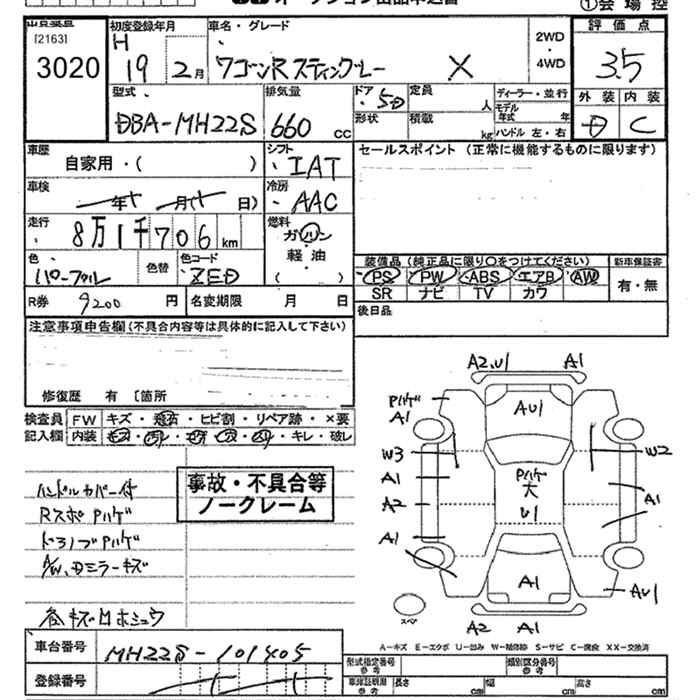 ①会場控
出品番号
[2163]
3020
初度登録年月
H 19 2月
車名・グレード
ワゴンR スティングレー X
2WD
・
4WD
評価点
3.5
外装 内装
D C
型式
DBA-MH22S
排気量
660 cc
ドア・ 5D
形状
定員 人
積載 kg
ディーラー・並行
モデル年式 年
ハンドル 左・右
車歴
自家用・( )
シフト
IAT
セールスポイント (正常に機能するものに限ります)
車検
年 月( 日)
冷房
AAC
走行
8万1千706km
燃料
ガソリン
軽油
( )
色
パープル
色替
色コード
ZED
装備品 (純正品に限り○をつけてください)
PS PW ABS エアB AW
SR ナビ TV カワ
新車保証書
有・無
R券 9200 円
名変期限 月 日
後日品
注意事項申告欄(不具合内容等は具体的に記入して下さい)
修復歴 有 〔箇所
検査員
記入欄
FW キズ・飛石・ヒビ割・リペア跡・×要
内装 キレ・破レ
ハンドルカバー付
RスポPハゲ
ドアノブPハゲ
A/W、Dミラーキズ
各キズ凹ホシュウ
事故・不具合等
ノークレーム
A2,U1 A1
Pハゲ
A1
AU1
W3
W2
A1
Pハゲ
大
U1
A2
A1
A1
A1
AU1
スペア
A2 A1
A-キズ E-エクボ U-凹み W-補修跡 S-サビ C-腐食 XX-交換済
車台番号
MH22S-101405
登録番号
型式指定番号
参考
類別区分番号
参考
車庫証明用
参考
長さ cm
幅 cm
高さ cm